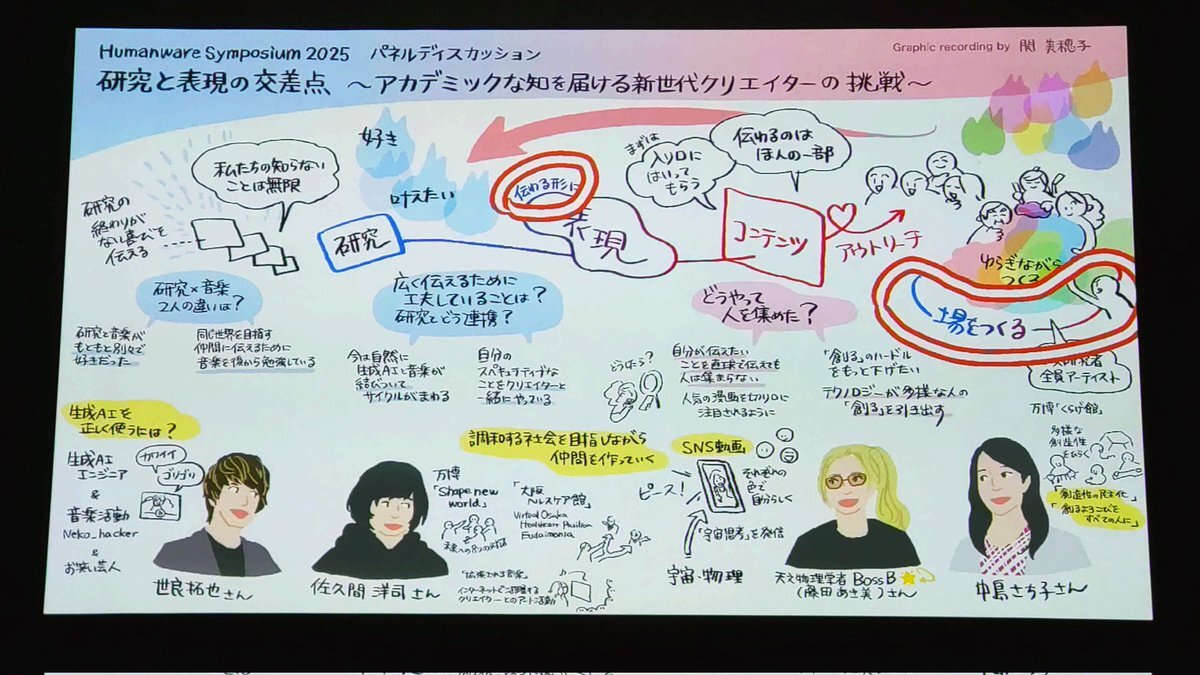 Humanware Symposium 2025 パネルディスカッション
Graphic recording by 関 美穂子
研究と表現の交差点 〜アカデミックな知を届ける新世代クリエイターの挑戦〜
好き
叶えたい
私たちの知らない
ことは無限
研究の
終わりが
ない喜びを
伝える
研究
伝わる形に
表現
まずは
入り口に
はいって
もらう
伝わるのは
ほんの一部
コンテンツ
アウトリーチ
ゆらぎながら
つくる
場をつくる
全員アーティスト
研究×音楽
2人の違いは?
研究と音楽が
もともと別々で
好きだった
同じ世界を目指す
仲間に伝えるために
音楽を後から勉強している
広く伝えるために
工夫していることは?
研究とどう連携?
今は自然に
生成AIと音楽が
結びついて
サイクルがまわる
自分の
スペキュラティブな
ことをクリエイターと
一緒にやっている
どうやって
人を集めた?
どうゆう?
自分が伝えたい
ことを直球で伝えても
人は集まらない
人気の漫画を切り口に
注目されるように
「創る」のハードル
をもっと下げたい
テクノロジーが多様な人の
「創る」を引き出す
生成AIを
正しく使うには?
生成AI
エンジニア
&
音楽活動
Neko_hacker
&
お笑い芸人
カワイイ
ゴリゴリ
世良拓也さん
調和する社会を目指しながら
仲間を作っていく
万博
「Shape new
world」
「大阪
ヘルスケア館」
Virtual Osaka
Healthcare Pavilion
Eudaimonia
インターネットで活躍する
クリエイターとのアート活動
佐久間 洋司 さん
SNS動画
ピース!
それぞれの
色で
自分らしく
「宇宙思考」を発信
宇宙・物理
天文物理学者 BossB
(藤田あき美)さん
万博「くらげ館」
多様な
創造性
をひらく
「創造性の民主化」
「創るよろこびを
すべての人に」
中島さち子さん